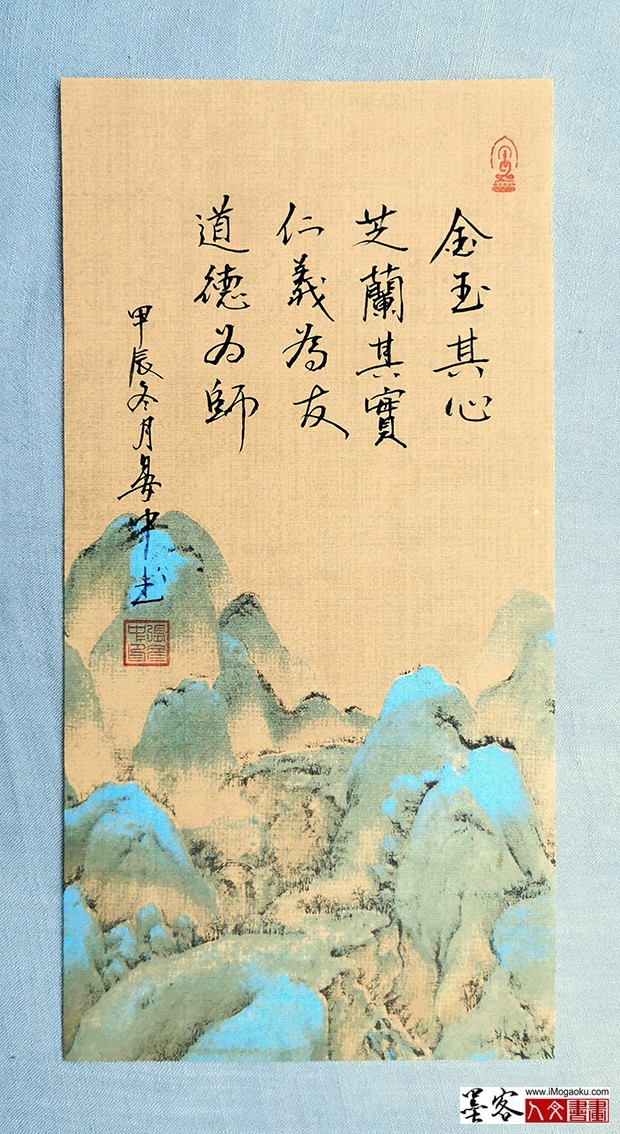 金玉其心
芝蘭其實
仁義為友
道德为師
甲辰冬月晏中书
墨客
www.iMogaoku.com
人文書畫